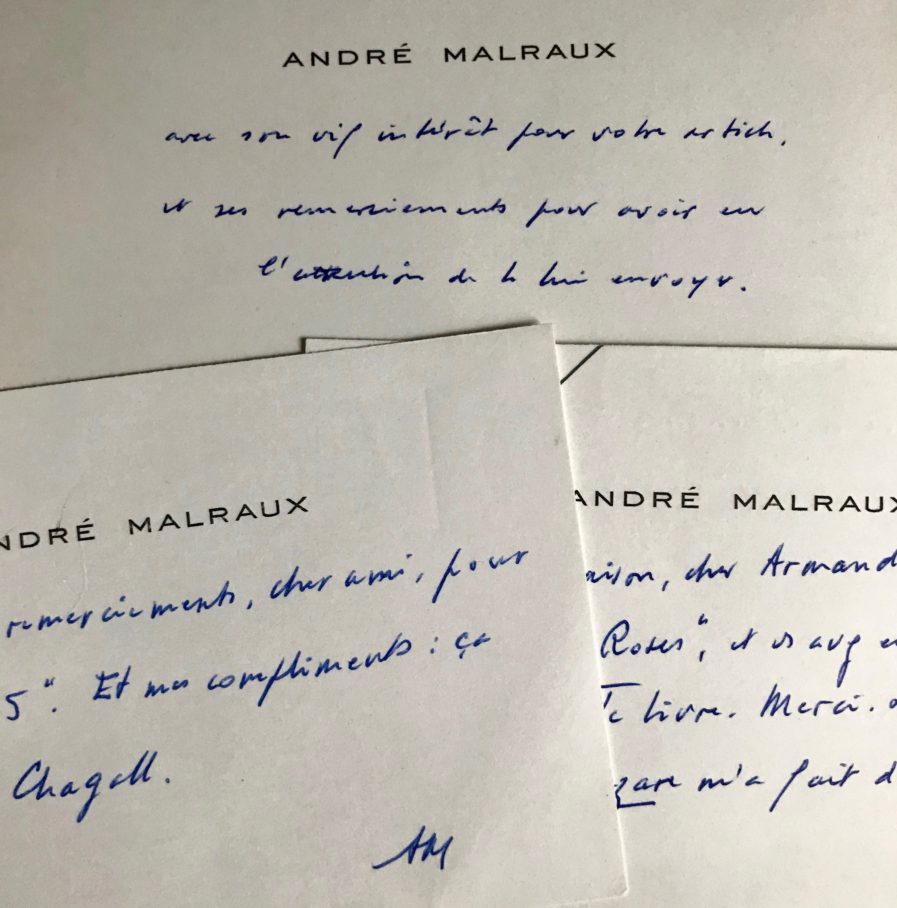 ANDRÉ MALRAUX
avec son vif intérêt pour votre article,
et ses remerciements pour avoir eu
l'attention de le lui envoyer.
NDRÉ MALRAUX
remerciements, cher ami, pour
5". Et mes compliments : ça
Chagall.
AM
ANDRÉ MALRAUX
aison, cher Armand
Roses", et vs avez
livre. Merci.
zare m'a fait d